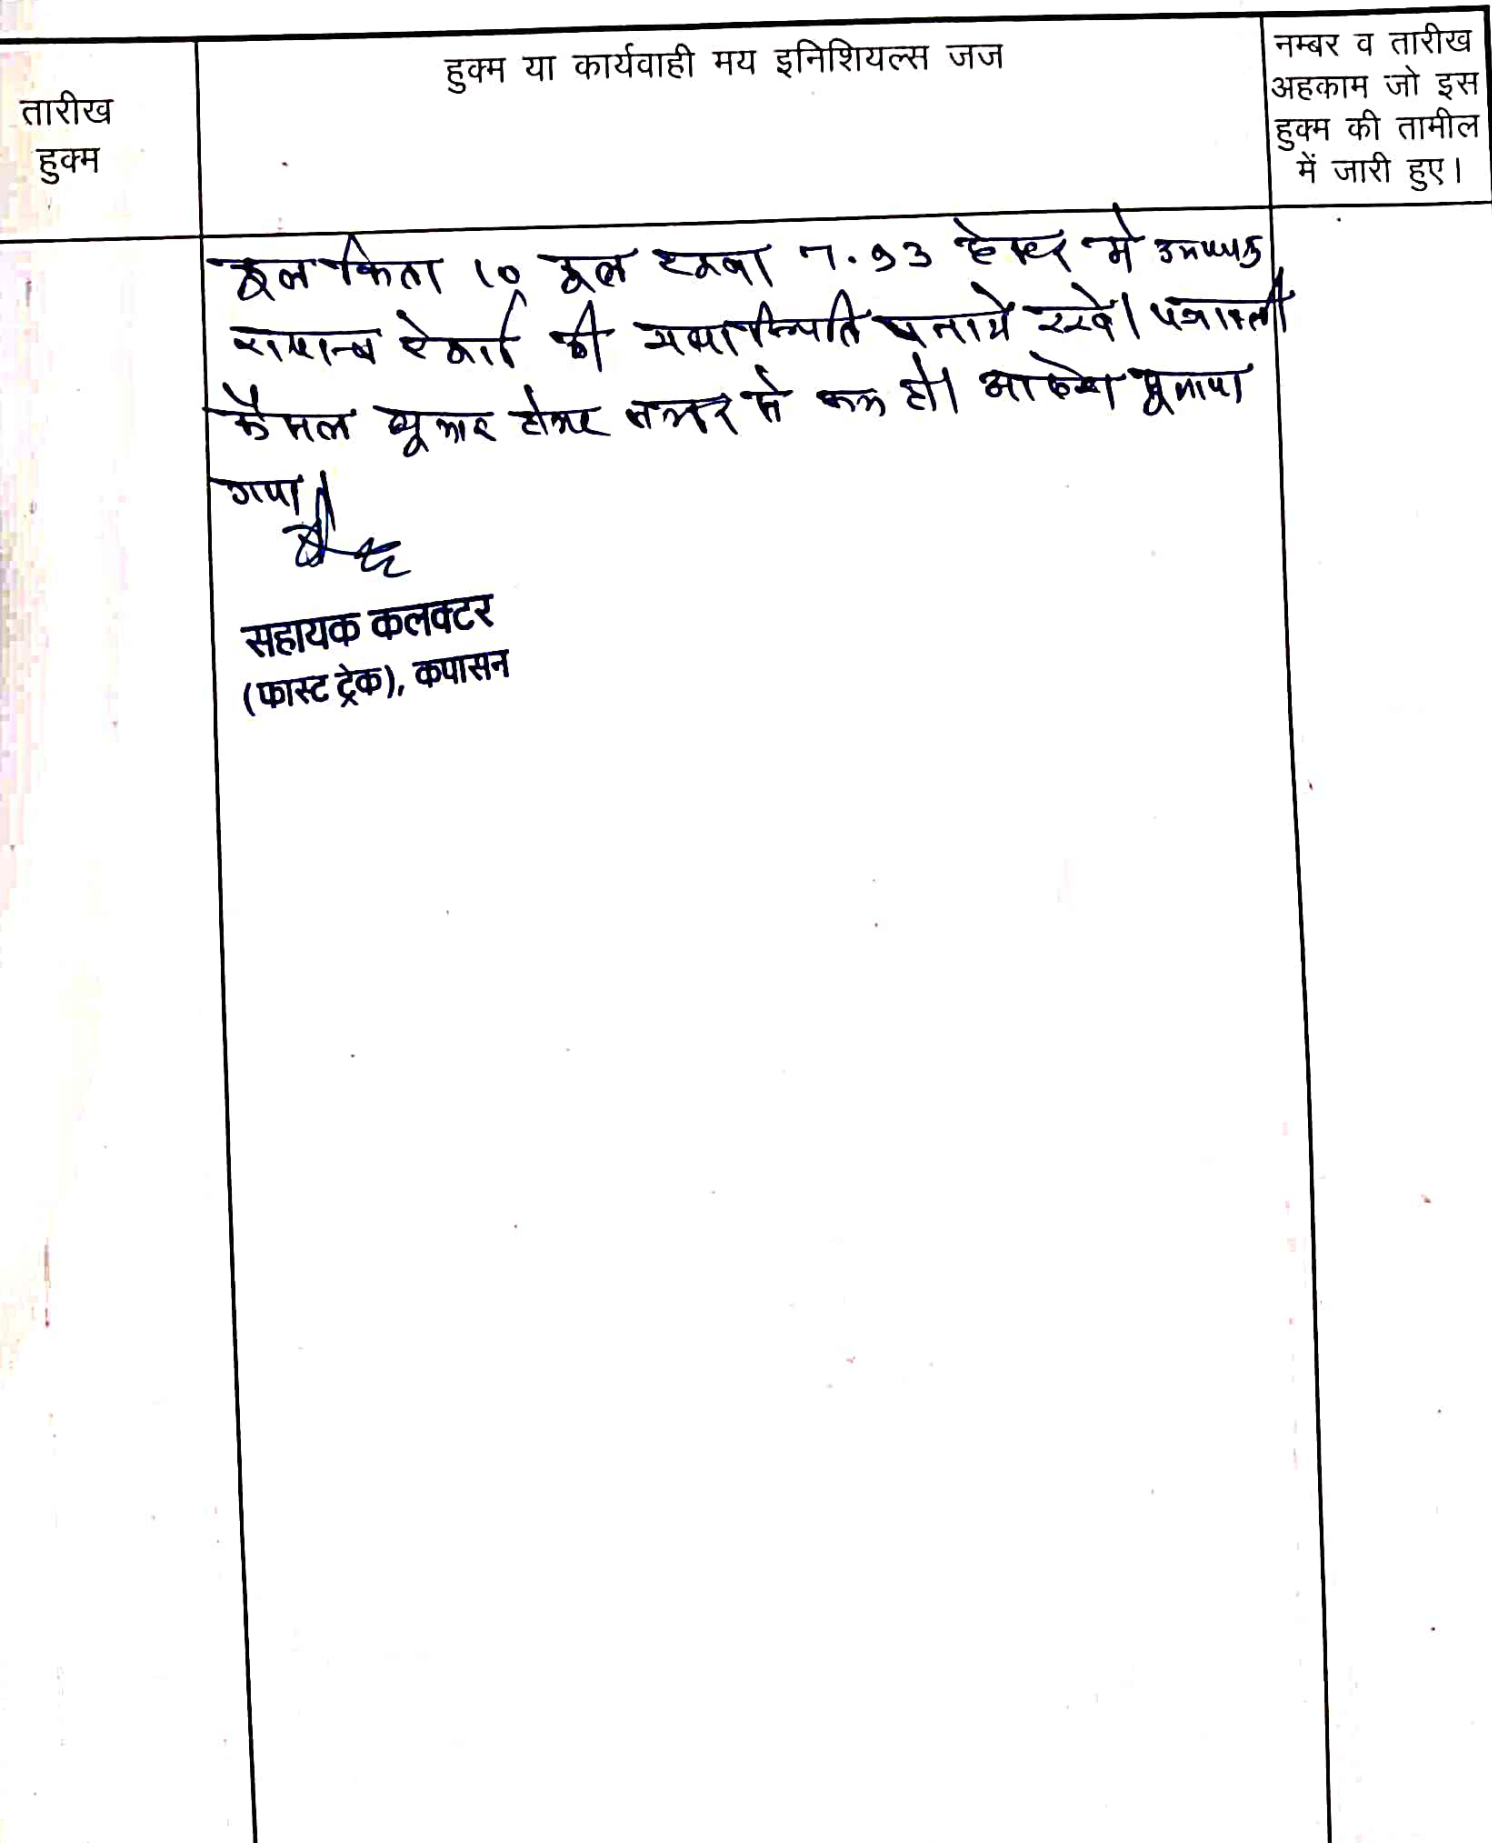 तारीख
हुक्म
हुक्म या कार्यवाही मय इनिशियल्स जज
नम्बर व तारीख
अहकाम जो इस
हुक्म की तामील
में जारी हुए।
कुल किता 10 कुल रकबा 7.93 हेक्टर मे
राजस्व रेकार्ड की यथास्थिति बनाये रखे। पत्रावली
फैसल शुमार होकर नम्बर से कम हो। आदेश सुनाया
गया।
सहायक कलक्टर
(फास्ट ट्रेक), कपासन